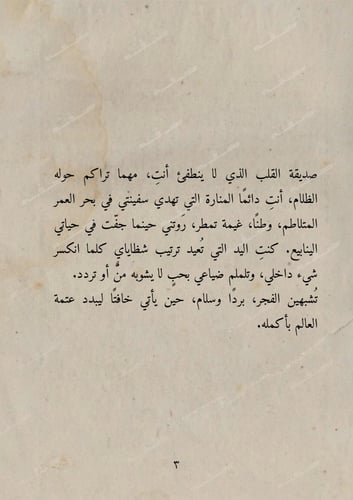 صديقة القلب الذي لا ينطفئ أنتِ، مهما تراكم حوله
الظلام، أنتِ دائمًا المنارة التي تهدي سفينتي في بحر العمر
المتلاطم، وطنًا، غيمة تمطر، رَوتني حينما جفّت في حياتي
الينابيع. كنتِ اليد التي تُعيد ترتيب شظاياي كلما انكسر
شيء داخلي، وتلملم ضياعي بحبٍ لا يشوبه منٌّ أو تردد.
تُشبهين الفجر، بردًا وسلام، حين يأتي خافتًا ليبدد عتمة
العالم بأكمله.
٣